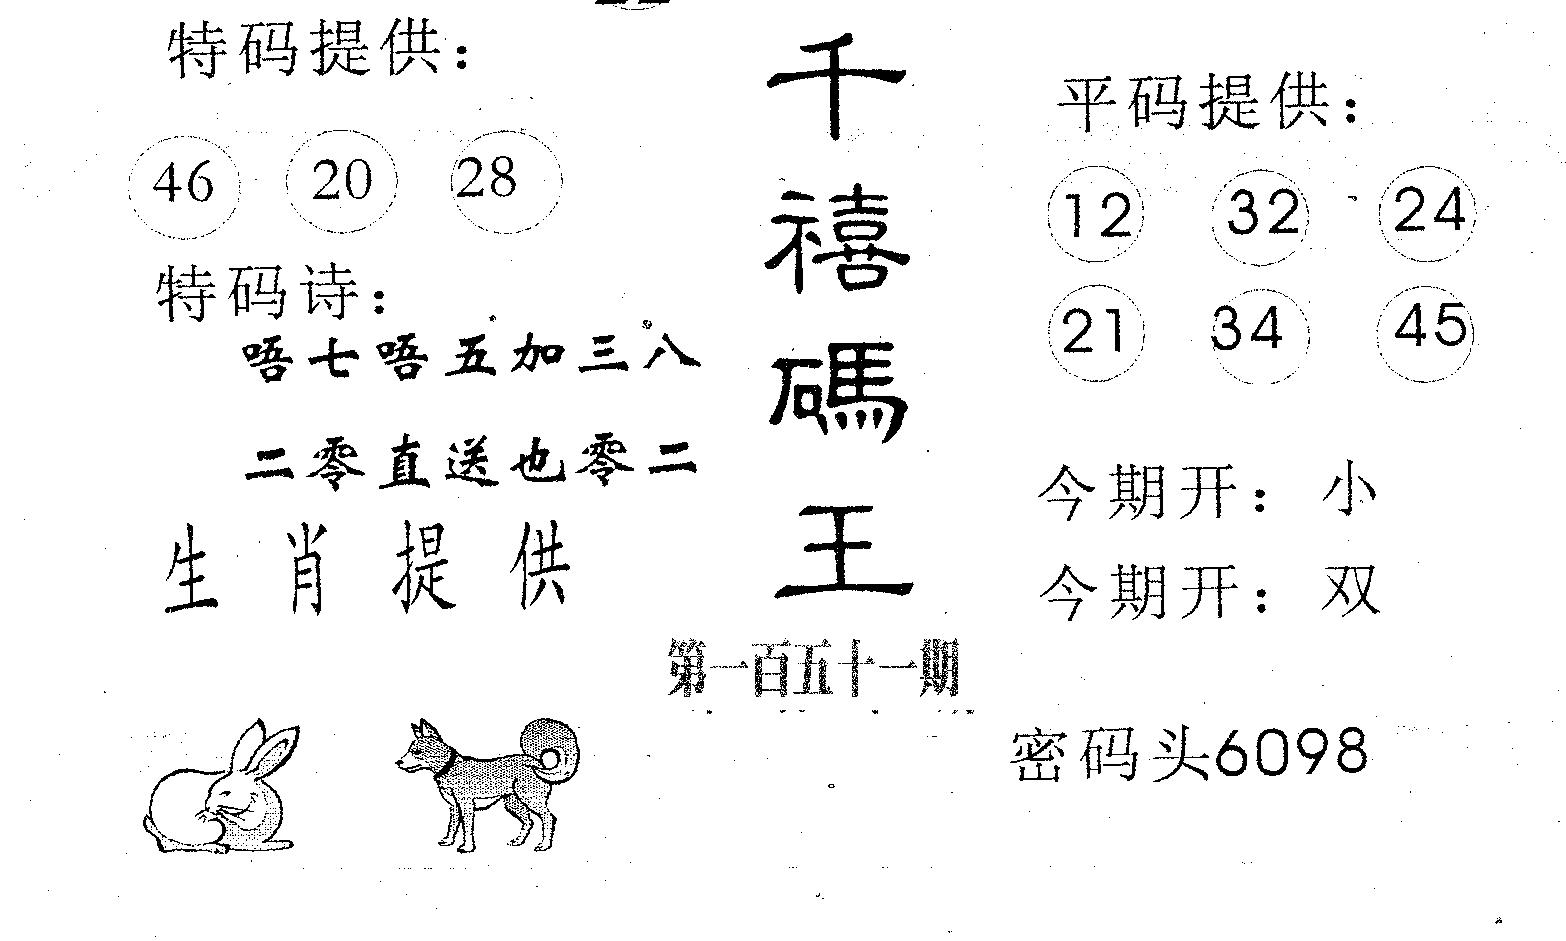 特码提供：
46 20 28
特码诗：
唔七唔五加三八
二零直送也零二
生肖提供
千禧碼王
第一百五十一期
平码提供：
12 32 24
21 34 45
今期开：小
今期开：双
密码头6098